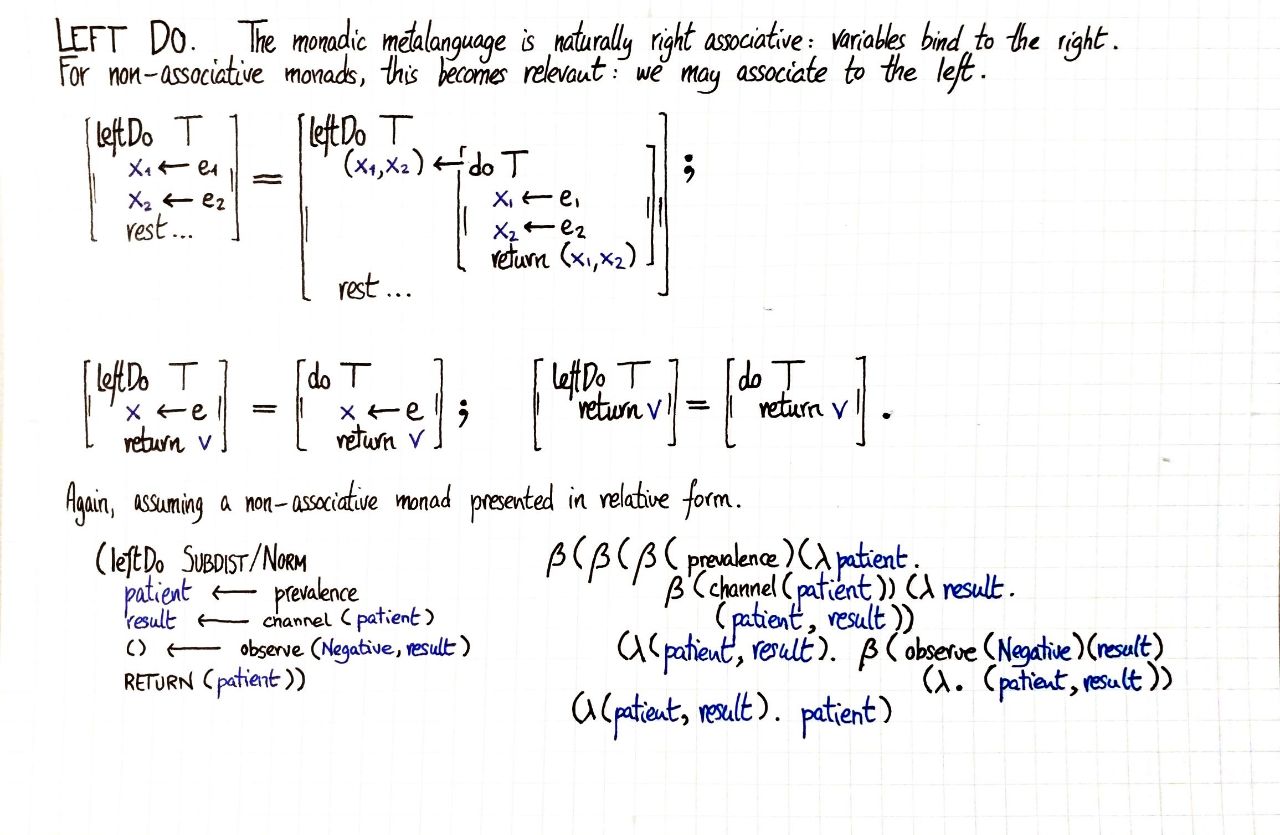 LEFT DO. The monadic metalanguage is naturally right associative: variables bind to the right.
For non-associative monads, this becomes relevant: we may associate to the left.
[leftDo T x₁ ← e₁ x₂ ← e₂ rest...] = [leftDo T (x₁,x₂) ← [do T x₁ ← e₁ x₂ ← e₂ return (x₁,x₂)] rest...] ;
[leftDo T x ← e return v] = [do T x ← e return v] ; [leftDo T return v] = [do T return v] .
Again, assuming a non-associative monad presented in relative form.
(leftDo SUBDIST/NORM
patient ← prevalence
result ← channel (patient)
() ← observe (Negative, result)
RETURN (patient))
β(β(β(prevalence)(λ patient.
β(channel(patient))(λ result.
(patient, result))
(λ(patient, result). β(observe(Negative)(result)
(λ. (patient, result))
(λ(patient, result). patient)